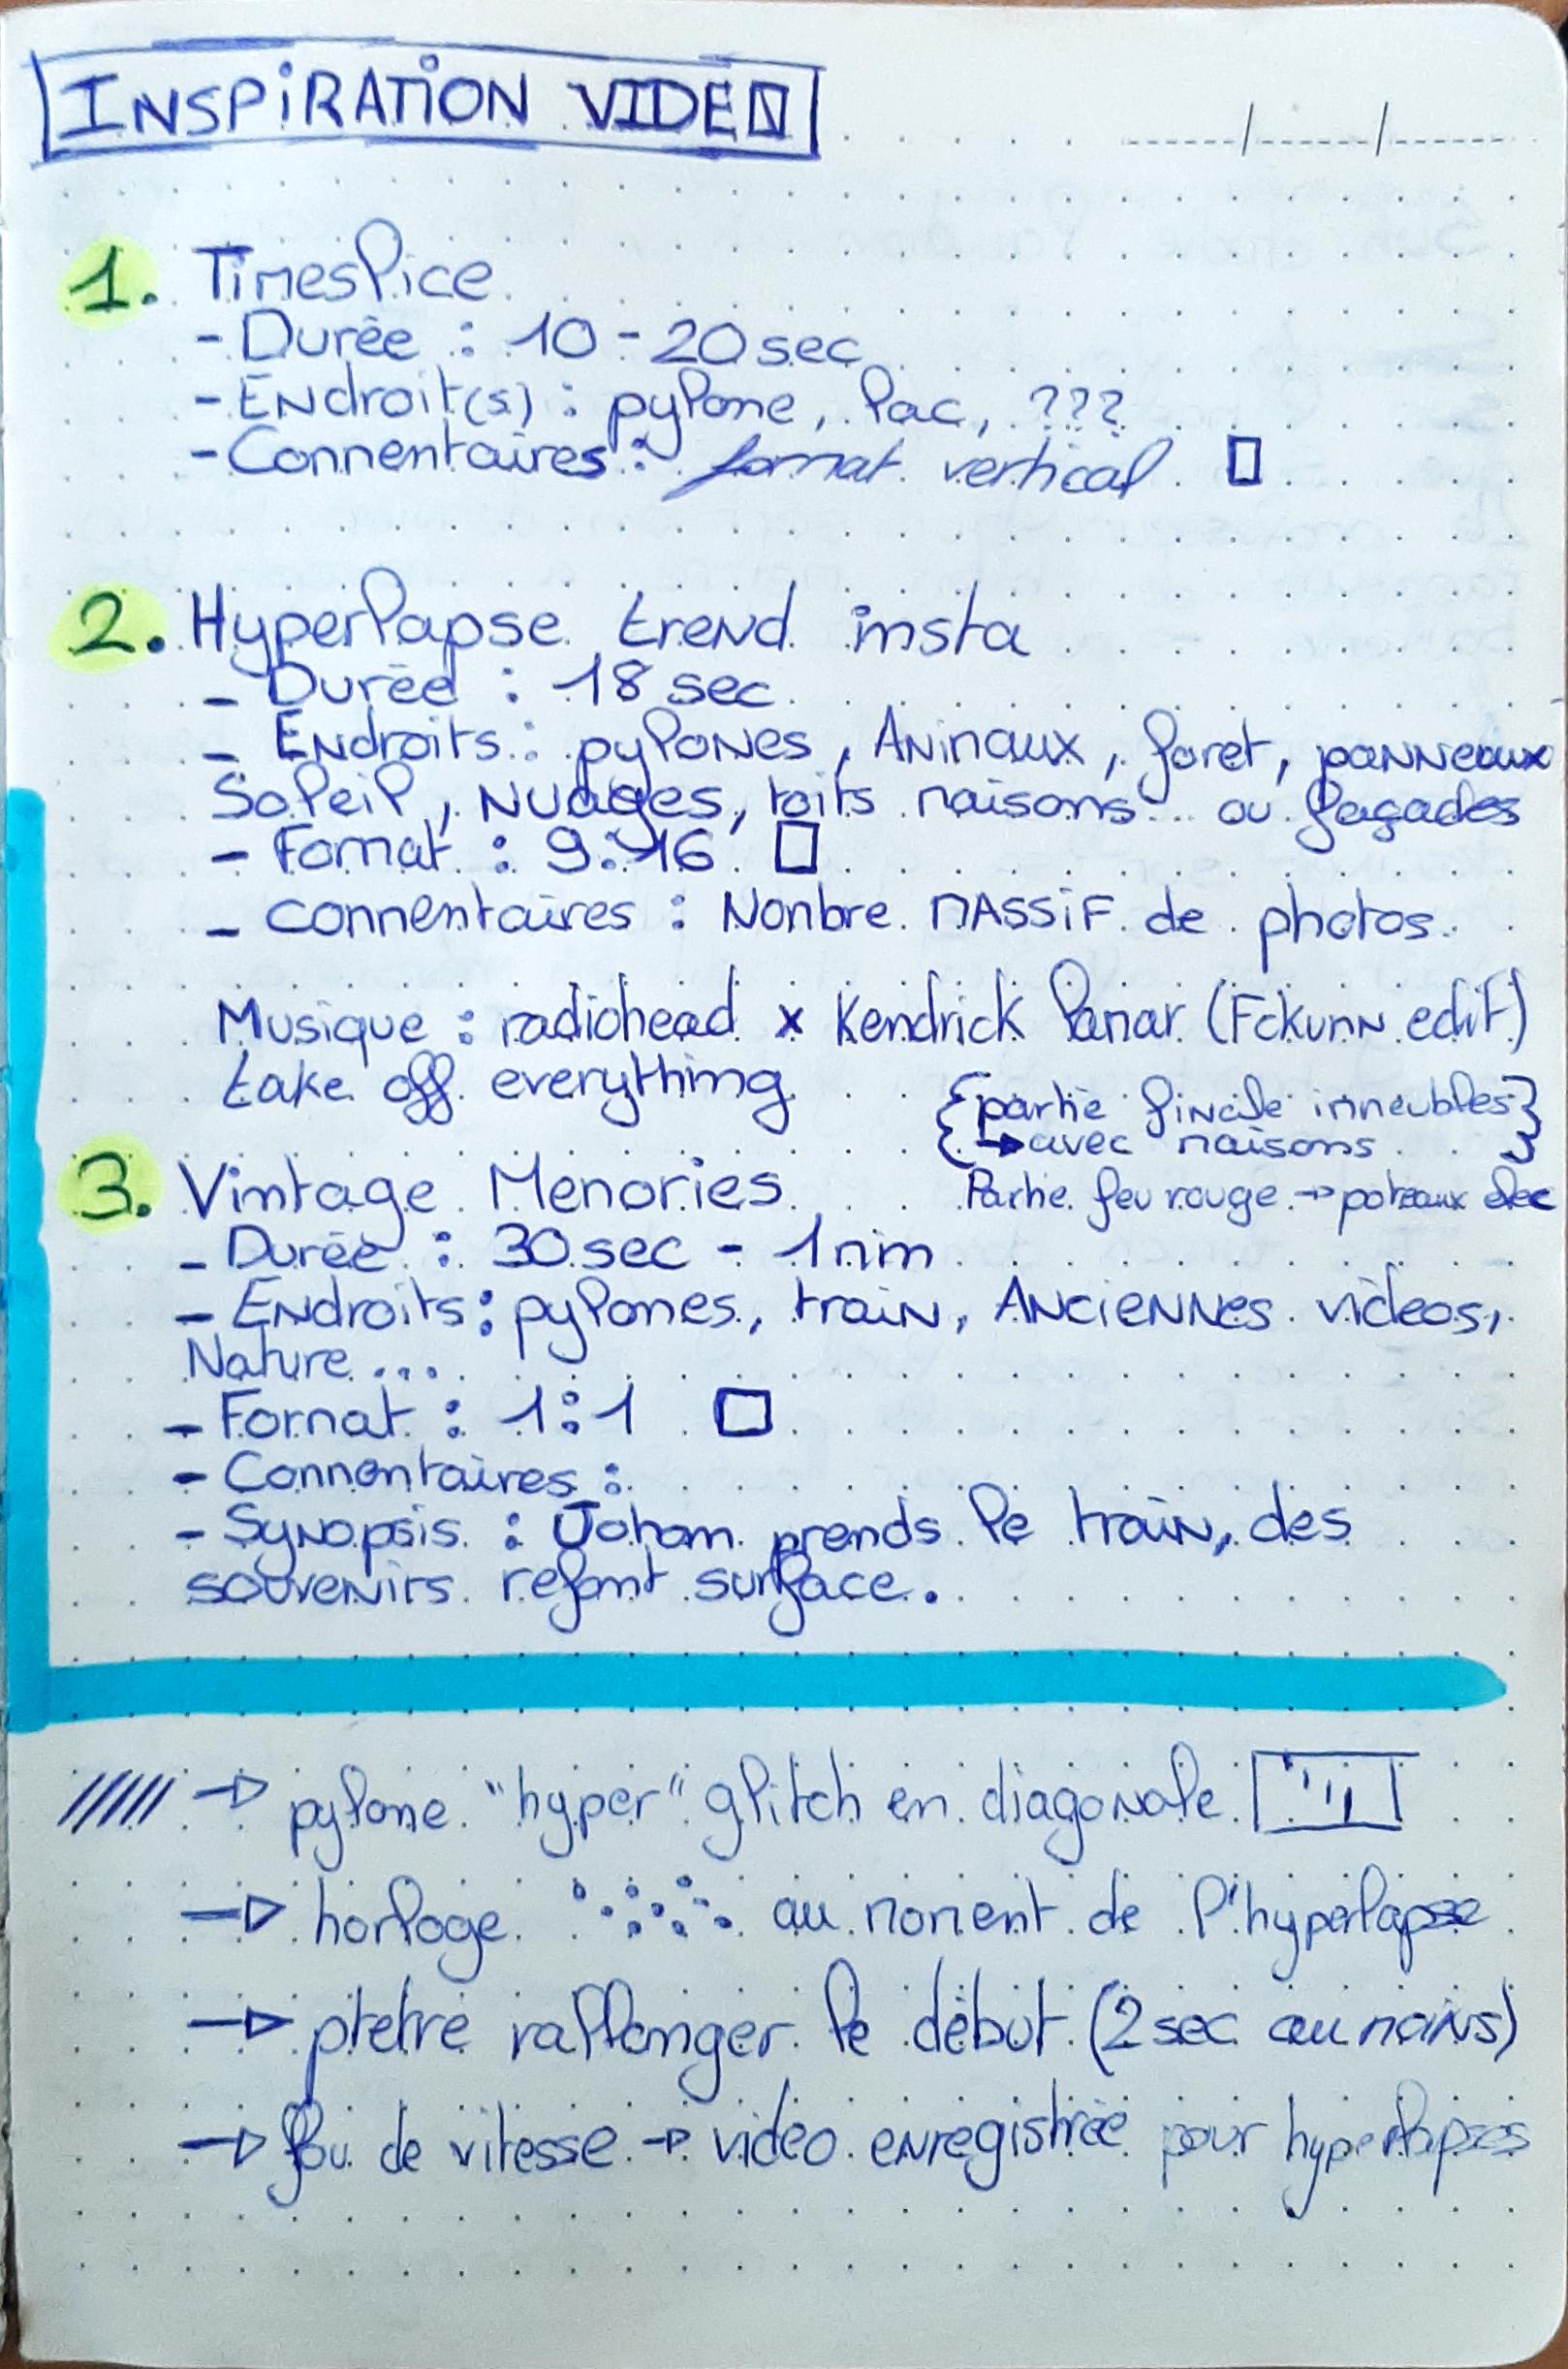 INSPIRATION VIDEO
1. Timeslice
- Durée : 10 - 20 sec
- Endroit(s) : pylone, lac, ???
- Commentaires : format vertical
2. Hyperlapse trend insta
- Durée : 18 sec
- Endroits : pylones, Animaux, foret, panneaux
Soleil, nuages, toits maisons... ou façades
- Format : 9:16
- commentaires : Nombre MASSIF de photos.
Musique : radiohead x Kendrick lamar (Fckunn edit)
take off everything
{partie finale immeubles}
{→ avec maisons}
Partie feu rouge → poteaux elec
3. Vintage Memories
- Durée : 30 sec - 1 min
- Endroits : pylones, train, Anciennes videos,
Nature...
- Format : 1:1
- Commentaires :
- Synopsis : Johan prends le train, des
souvenirs refont surface.
→ pylone "hyper" glitch en diagonale
→ horloge au moment de l'hyperlapse
→ ptetre rallonger le début (2 sec au moins)
→ flou de vitesse → video enregistrée pour hyperlapses